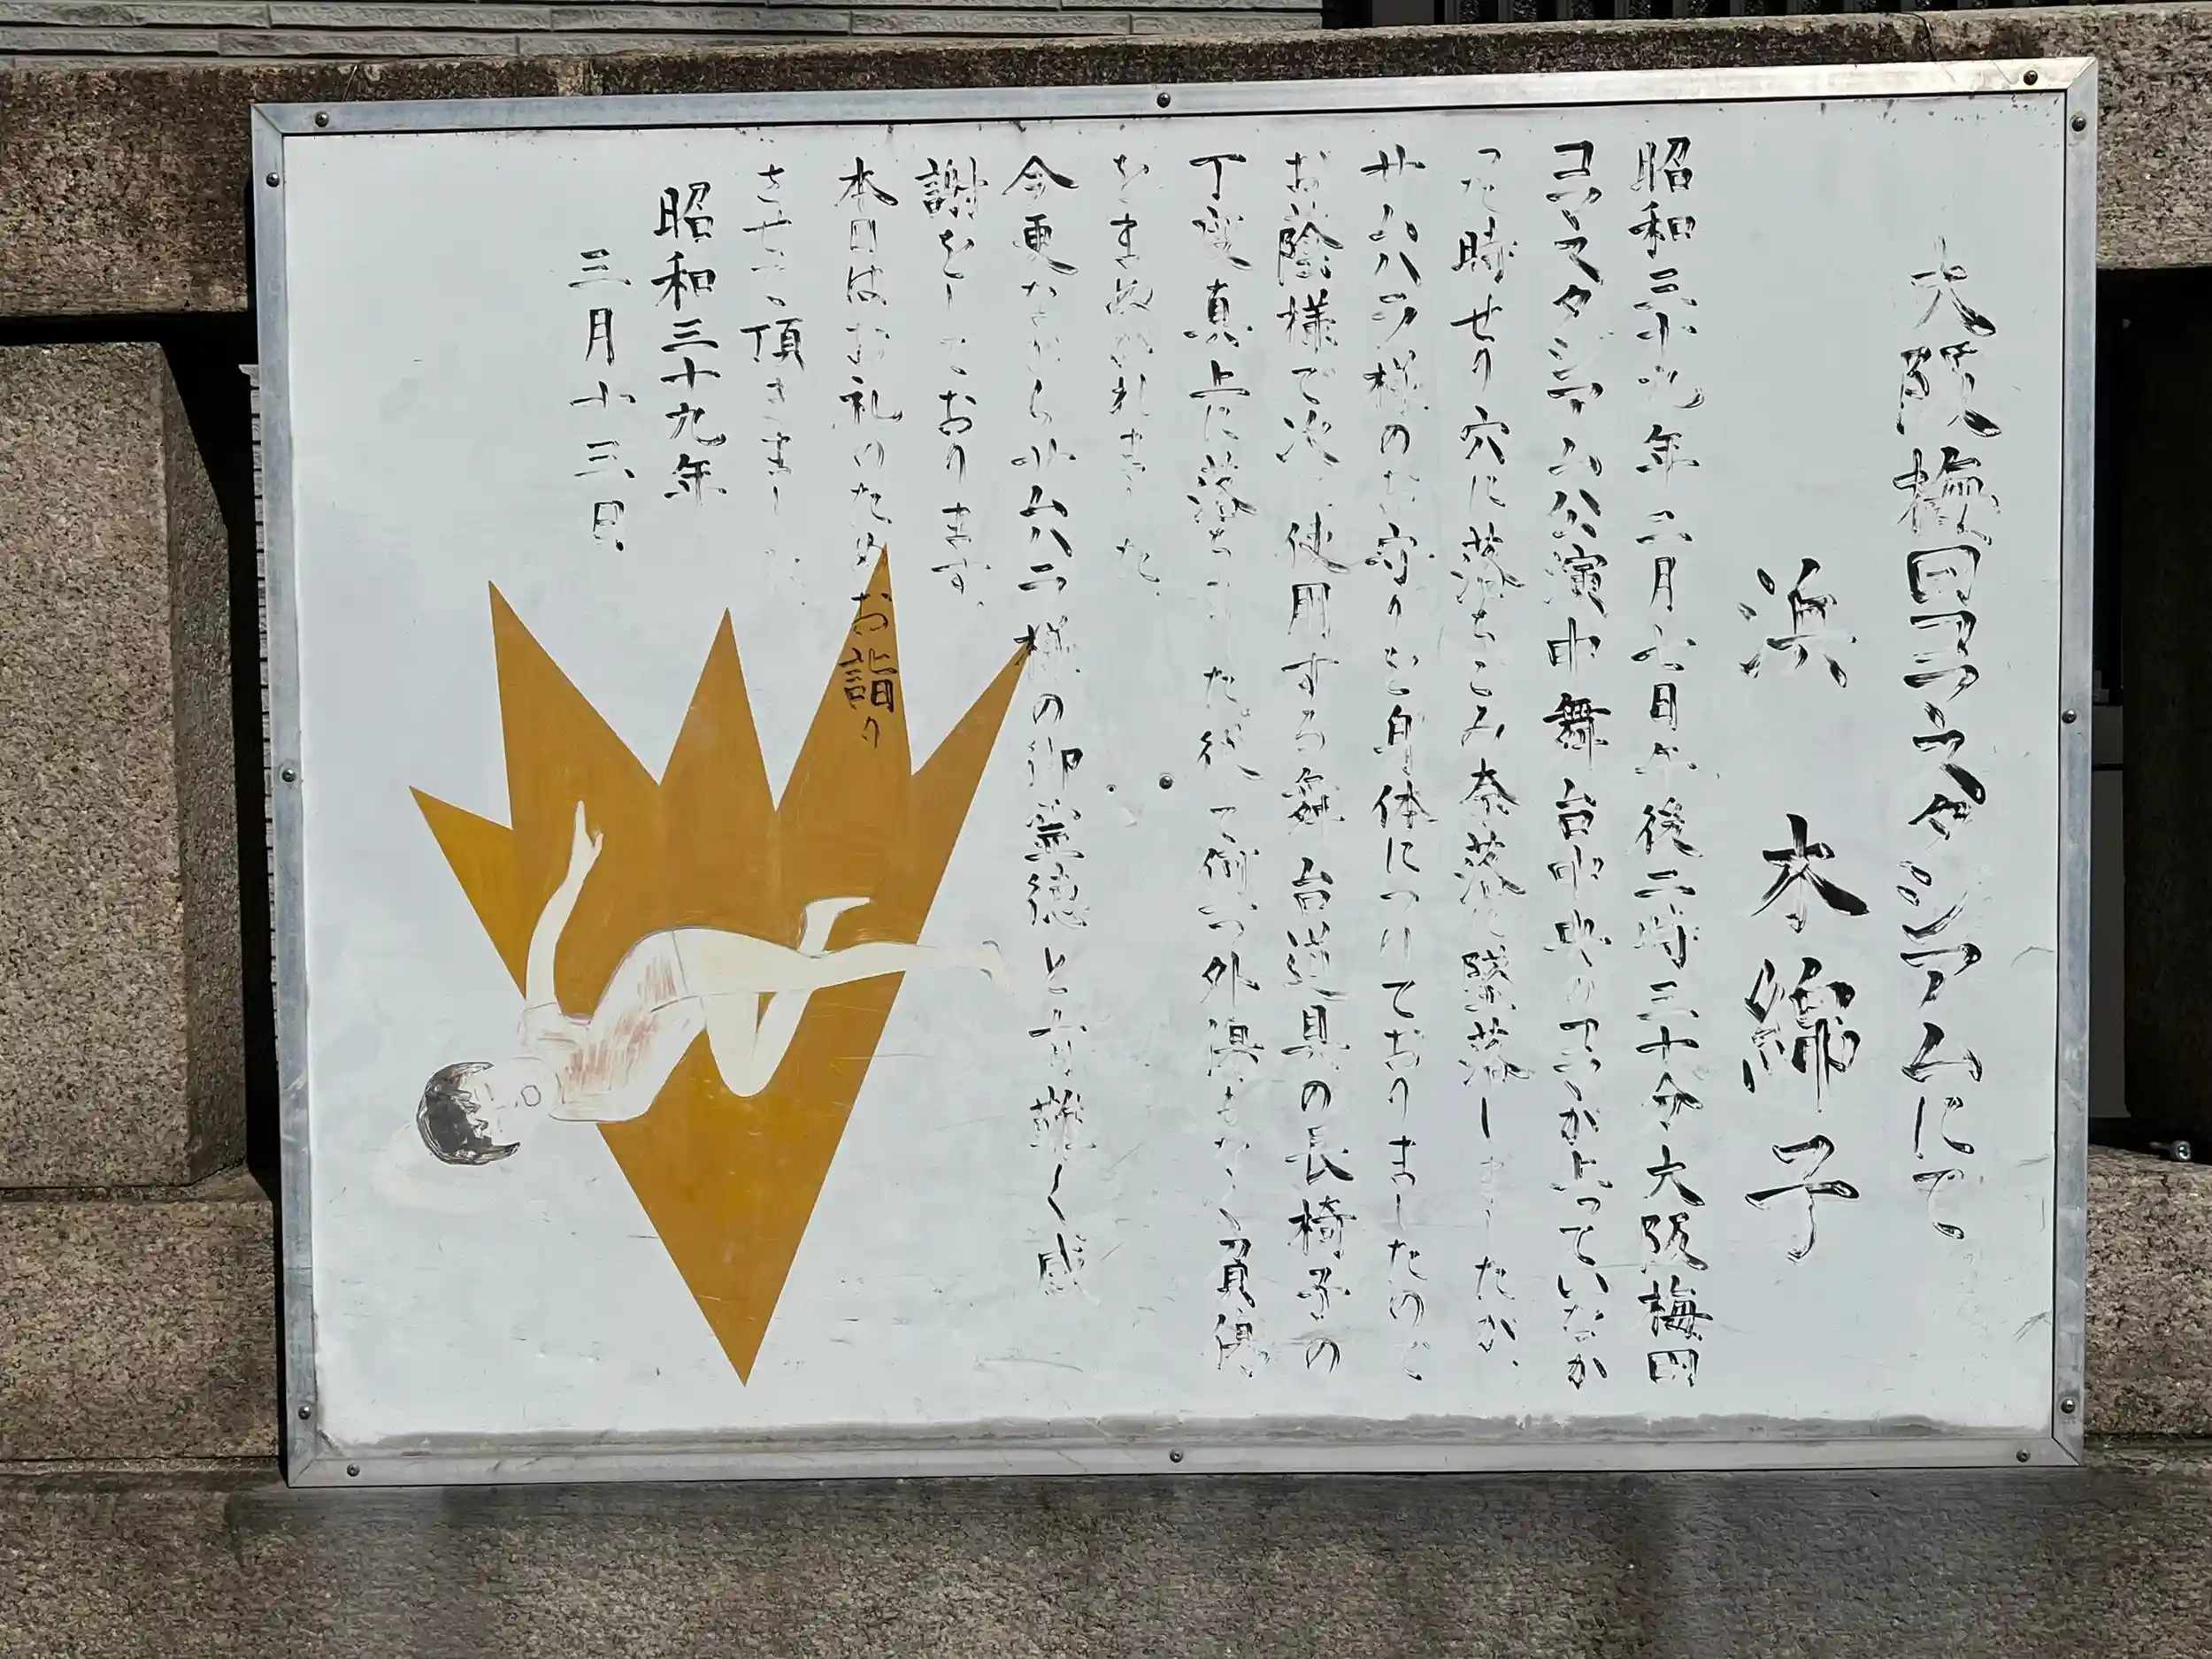 大阪梅田コマスタジアムにて
浜 木綿子
昭和三十九年二月七日午後二時三十分大阪梅田
コマスタジアム公演中舞台中央のフタが上っていなか
った時せり穴に落ちこみ奈落に墜落しましたが、
サムハラ様のお守りを身体につけておりましたので
お陰様で次に使用する舞台道具の長椅子の
丁度真上に落ち 外傷もなく負傷
をまぬがれました。
今更ながらサムハラ様の御 徳と有難く感
謝をしております。
本日はお礼のためお詣り
させて頂きました。
昭和三十九年
三月十三日